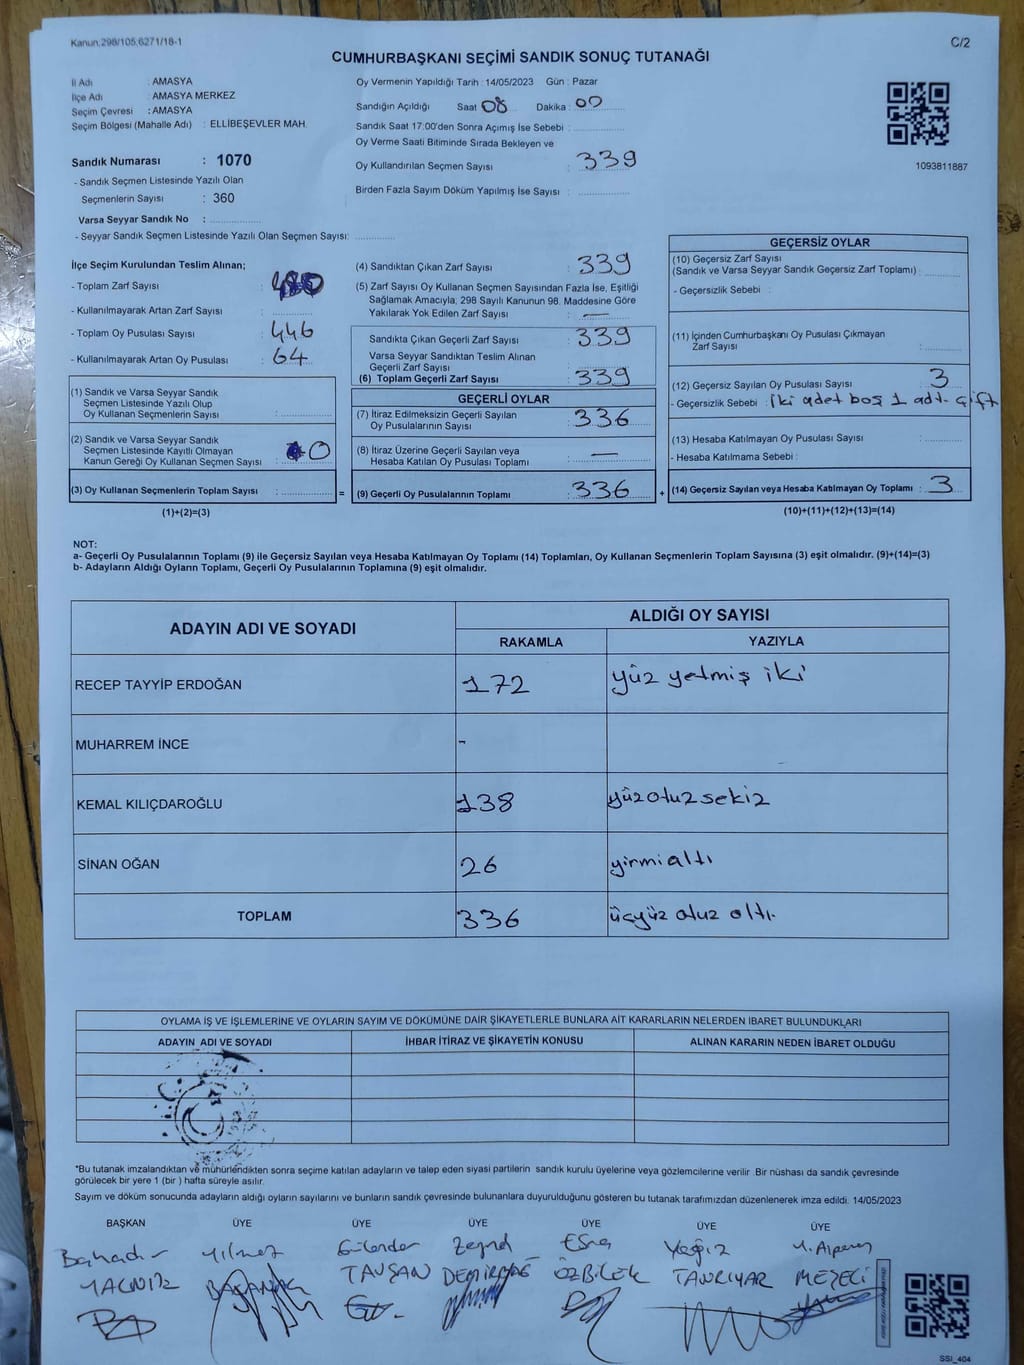 Kanun.298/105,6271/18-1
C/2
CUMHURBAŞKANI SEÇİMİ SANDIK SONUÇ TUTANAĞI
İl Adı : AMASYA
İlçe Adı : AMASYA MERKEZ
Seçim Çevresi : AMASYA
Seçim Bölgesi (Mahalle Adı) : ELLİBEŞEVLER MAH.
Oy Vermenin Yapıldığı Tarih : 14/05/2023 Gün : Pazar
Sandığın Açıldığı Saat 08 Dakika : 00
Sandık Saat 17:00'den Sonra Açımış İse Sebebi :
Oy Verme Saati Bitiminde Sırada Bekleyen ve
Oy Kullandırılan Seçmen Sayısı : 339
Birden Fazla Sayım Döküm Yapılmış İse Sayısı :
1093811887
Sandık Numarası : 1070
- Sandık Seçmen Listesinde Yazılı Olan
Seçmenlerin Sayısı : 360
Varsa Seyyar Sandık No :
- Seyyar Sandık Seçmen Listesinde Yazılı Olan Seçmen Sayısı:
İlçe Seçim Kurulundan Teslim Alınan;
- Toplam Zarf Sayısı :
- Kullanılmayarak Artan Zarf Sayısı :
- Toplam Oy Pusulası Sayısı : 446
- Kullanılmayarak Artan Oy Pusulası : 64
(1) Sandık ve Varsa Seyyar Sandık
Seçmen Listesinde Yazılı Olup
Oy Kullanan Seçmenlerin Sayısı :
(2) Sandık ve Varsa Seyyar Sandık
Seçmen Listesinde Kayıtlı Olmayan
Kanun Gereği Oy Kullanan Seçmen Sayısı : 0
(3) Oy Kullanan Seçmenlerin Toplam Sayısı : =
(1)+(2)=(3)
(4) Sandıktan Çıkan Zarf Sayısı : 339
(5) Zarf Sayısı Oy Kullanan Seçmen Sayısından Fazla İse, Eşitliği
Sağlamak Amacıyla, 298 Sayılı Kanunun 98. Maddesine Göre
Yakılarak Yok Edilen Zarf Sayısı : —
Sandıkta Çıkan Geçerli Zarf Sayısı : 339
Varsa Seyyar Sandıktan Teslim Alınan
Geçerli Zarf Sayısı :
(6) Toplam Geçerli Zarf Sayısı : 339
GEÇERLİ OYLAR
(7) İtiraz Edilmeksizin Geçerli Sayılan
Oy Pusulalarının Sayısı : 336
(8) İtiraz Üzerine Geçerli Sayılan veya
Hesaba Katılan Oy Pusulası Toplamı : —
(9) Geçerli Oy Pusulalarının Toplamı : 336 +
GEÇERSİZ OYLAR
(10) Geçersiz Zarf Sayısı
(Sandık ve Varsa Seyyar Sandık Geçersiz Zarf Toplamı) :
- Geçersizlik Sebebi :
(11) İçinden Cumhurbaşkanı Oy Pusulası Çıkmayan
Zarf Sayısı :
(12) Geçersiz Sayılan Oy Pusulası Sayısı : 3
- Geçersizlik Sebebi : iki adet boş 1 adt. çift
(13) Hesaba Katılmayan Oy Pusulası Sayısı :
- Hesaba Katılmama Sebebi :
(14) Geçersiz Sayılan veya Hesaba Katılmayan Oy Toplamı : 3
(10)+(11)+(12)+(13)=(14)
NOT:
a- Geçerli Oy Pusulalarının Toplamı (9) ile Geçersiz Sayılan veya Hesaba Katılmayan Oy Toplamı (14) Toplamları, Oy Kullanan Seçmenlerin Toplam Sayısına (3) eşit olmalıdır. (9)+(14)=(3)
b- Adayların Aldığı Oyların Toplamı, Geçerli Oy Pusulalarının Toplamına (9) eşit olmalıdır.
ADAYIN ADI VE SOYADI
ALDIĞI OY SAYISI
RAKAMLA YAZIYLA
RECEP TAYYİP ERDOĞAN 172 yüz yetmiş iki
MUHARREM İNCE -
KEMAL KILIÇDAROĞLU 138 yüzotuzsekiz
SİNAN OĞAN 26 yirmialtı
TOPLAM 336 üçyüz otuz altı.
OYLAMA İŞ VE İŞLEMLERİNE VE OYLARIN SAYIM VE DÖKÜMÜNE DAİR ŞİKAYETLERLE BUNLARA AİT KARARLARIN NELERDEN İBARET BULUNDUKLARI
ADAYIN ADI VE SOYADI İHBAR İTİRAZ VE ŞİKAYETİN KONUSU ALINAN KARARIN NEDEN İBARET OLDUĞU
*Bu tutanak imzalandıktan ve mühürlendikten sonra seçime katılan adayların ve talep eden siyasi partilerin sandık kurulu üyelerine veya gözlemcilerine verilir .Bir nüshası da sandık çevresinde
görülecek bir yere 1 (bir ) hafta süreyle asılır.
Sayım ve döküm sonucunda adayların aldığı oyların sayılarını ve bunların sandık çevresinde bulunanlara duyurulduğunu gösteren bu tutanak tarafımızdan düzenlenerek imza edildi. 14/05/2023
BAŞKAN ÜYE ÜYE ÜYE ÜYE ÜYE ÜYE
Bahadır Yılmaz Gülender Zeynel Esra Yağız M. Alperen
YALNIZ TAVŞAN DEMİRBAĞ ÖZBİLEK TANRIYAR MEŞECİ
SSI_404